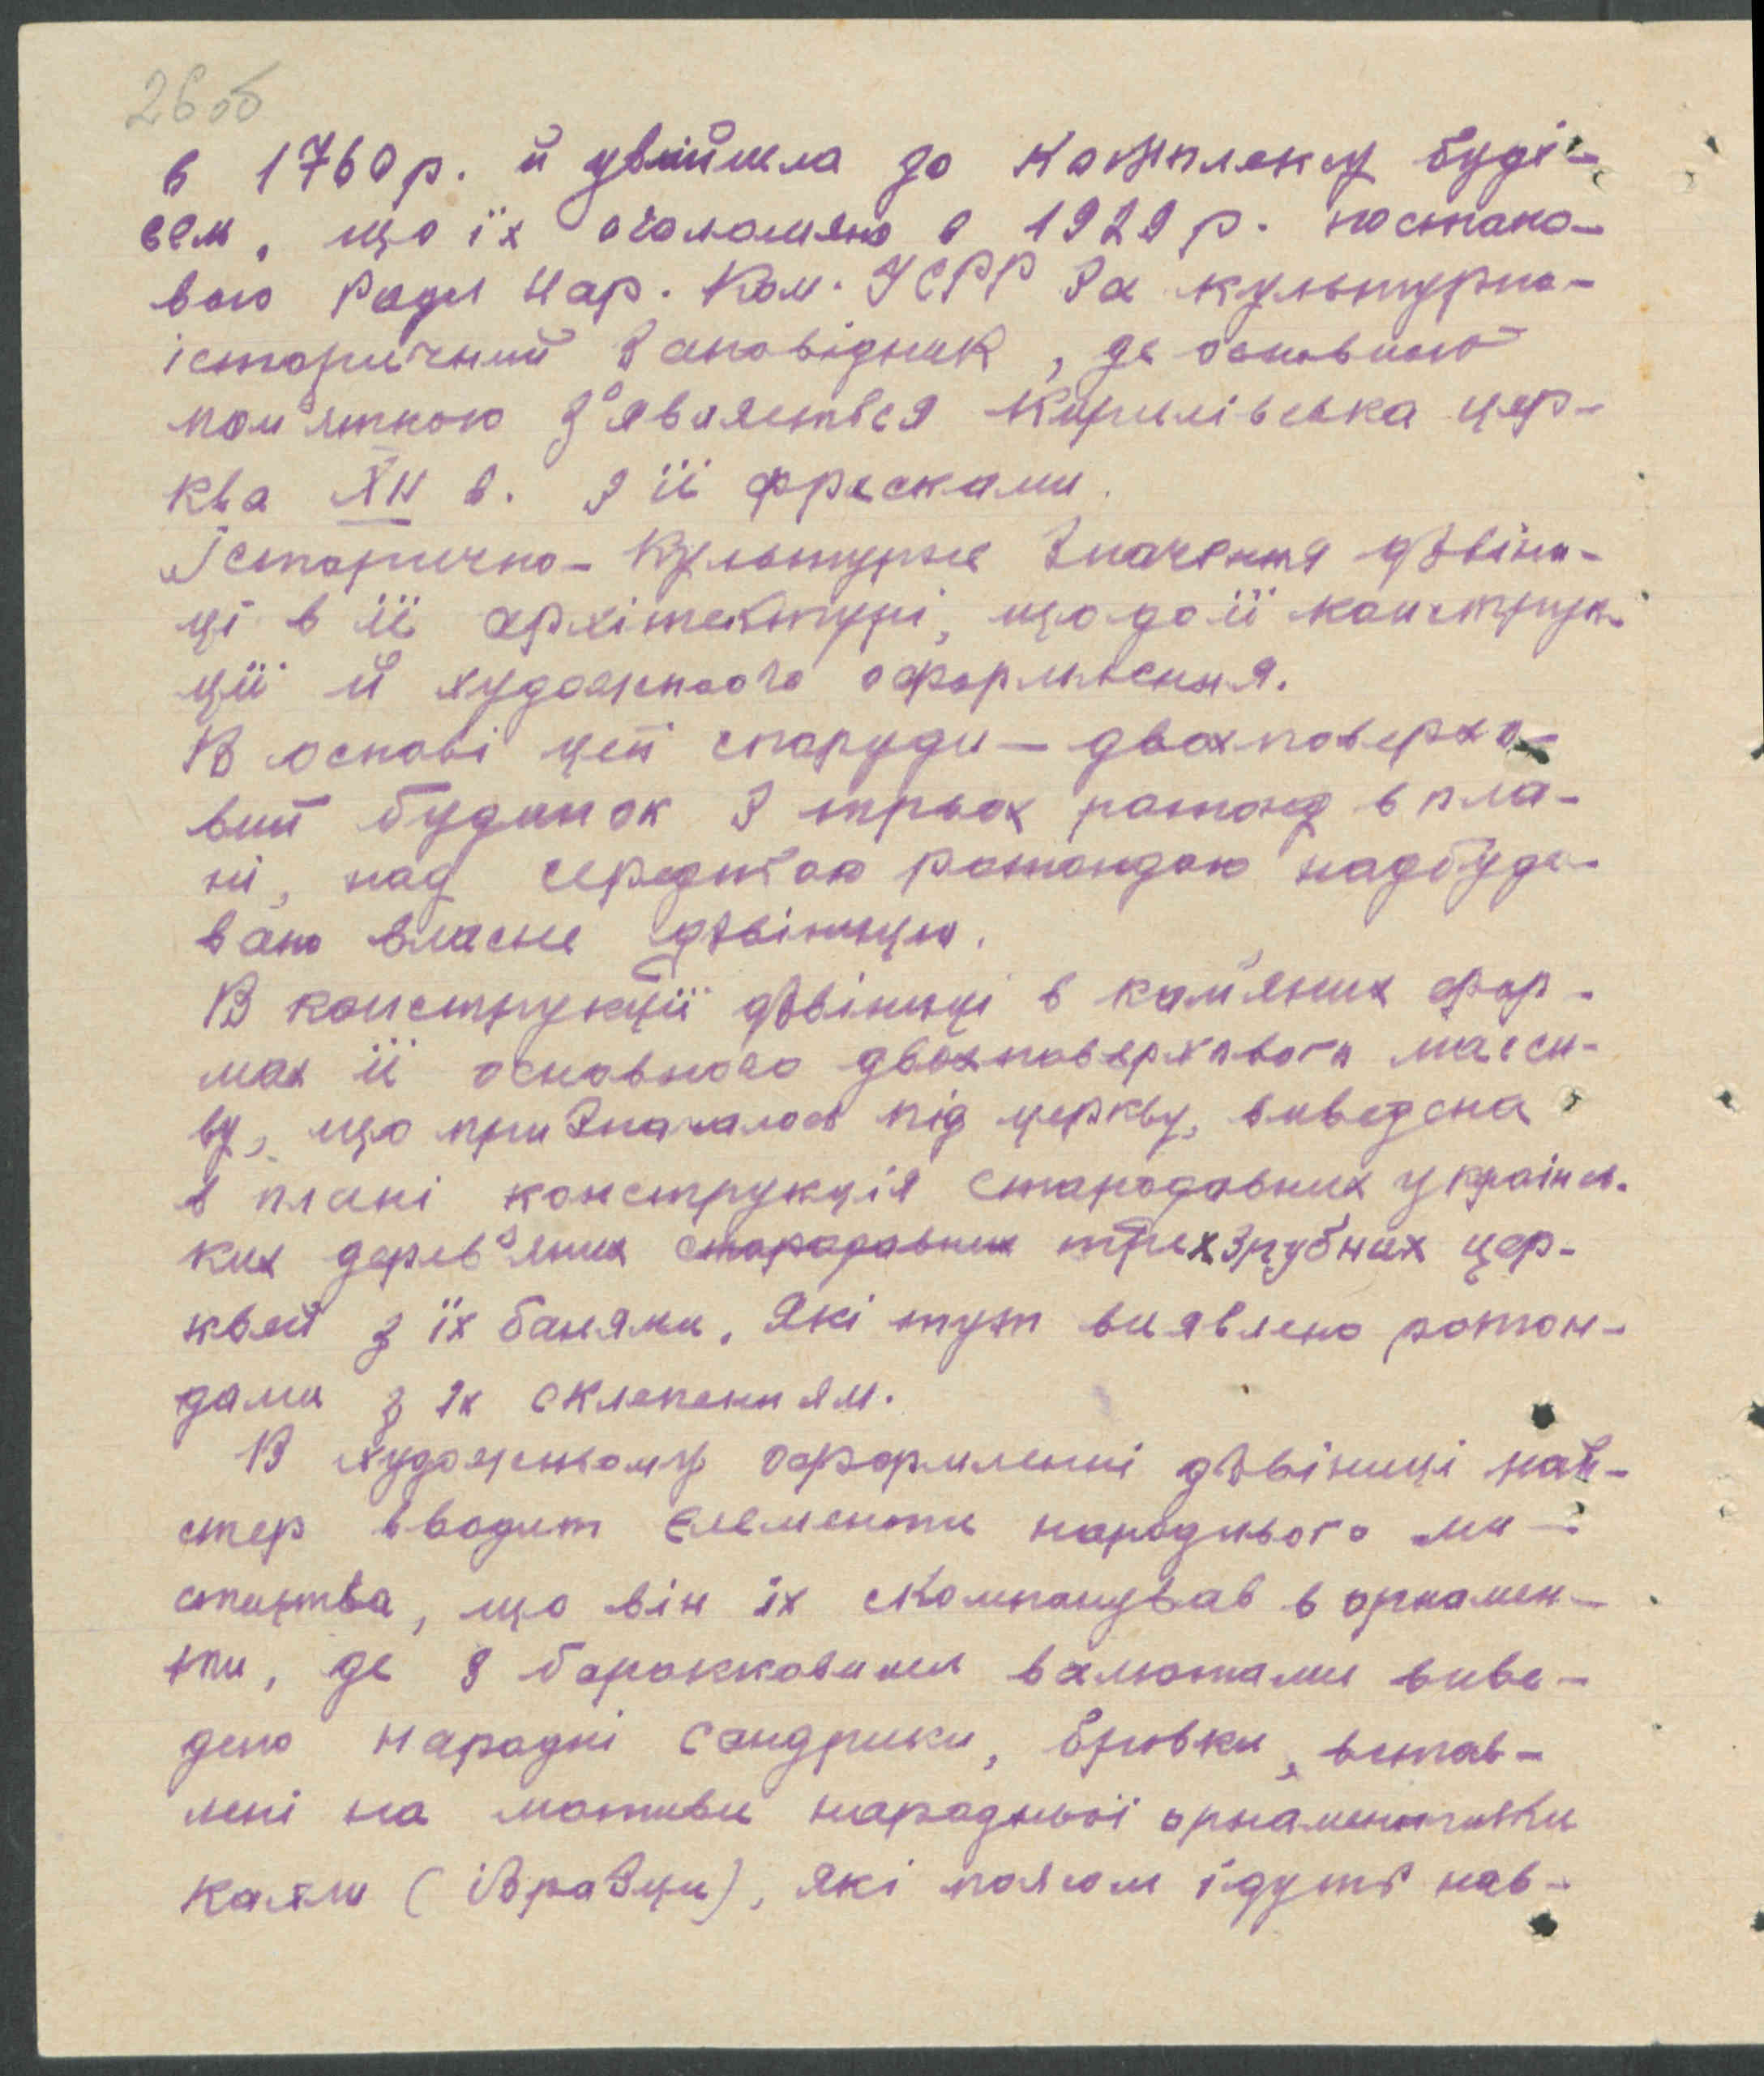 26об
в 1760 р. й увійшла до комплексу буді-
вел, що їх оголошено в 1929 р. постано-
вою Ради Нар. Ком. УСРР за культурно-
історичний заповідник, де основною
пам'яткою з'являється Кирилівська цер-
ква XII в. з її фресками.
Історично-культурне значення дзвіни-
ці в її архітектурі, щодо її конструк-
ції й художнього оформлення.
В основі цей споруди — двохповерхо-
вий будинок з трьох ротонд в пла-
ні, над середньою ротондою надбудо-
вано власне дзвіницю.
В конструкції дзвіниці в кам'яних фор-
мах її основного двохповерхового масси-
ву, що призначалось під церкву, виведена
в плані конструкція стародавних українсь-
ких дерев'яних стародавних трихзрубних цер-
квей з їх банями, які тут виявлено ротон-
дами з їх склепенням.
В художньому оформленні дзвіниці май-
стер вводит елементи народнього ми-
стецтва, що він їх скомпонував в орнамен-
ти, де з барокковими валютами виве-
дено народні сандрики, бровки, встав-
лені на мотиви народньої орнаментики
кахли (ізразци), які поясом ідуть нав-